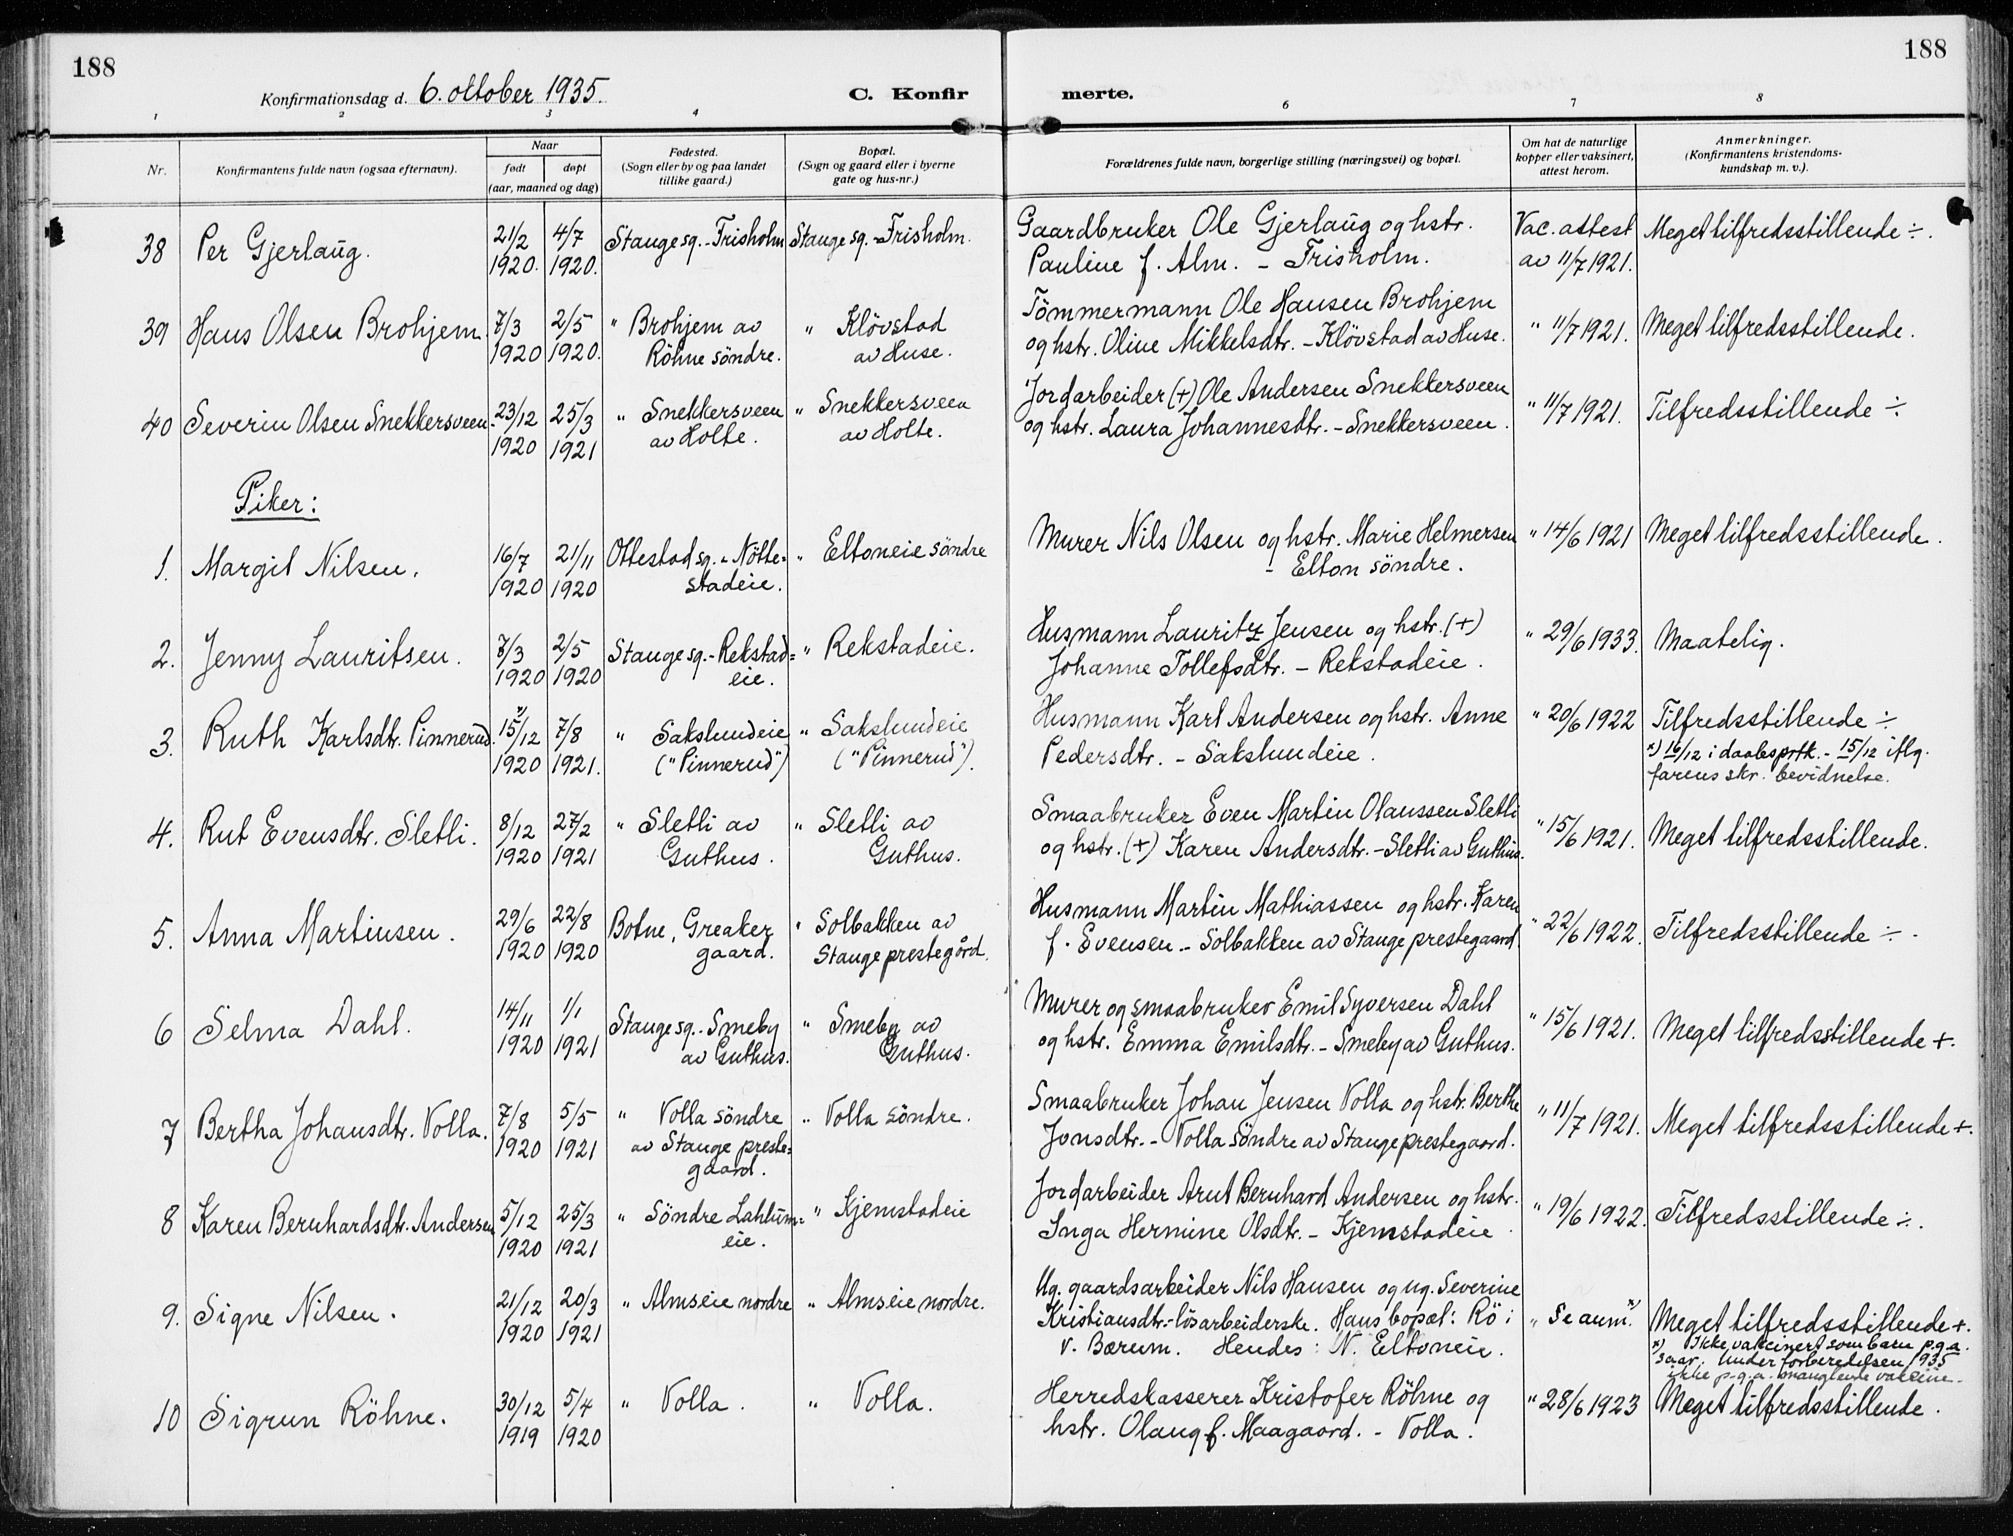 188
188
Konfirmationsdag d. 6. oktober 1935.
C. Konfir
merte.
1 2 3 4 6 7 8
Nr.
Konfirmantens fulde navn (ogsaa efternavn).
Naar
født
døpt
(aar, maaned og dag)
Fødested.
(Sogn eller by og paa landet
tillike gaard.)
Bopæl.
(Sogn og gaard eller i byerne
gate og hus-nr.)
Forældrenes fulde navn, borgerlige stilling (næringsvei) og bopæl.
Om hat de naturlige
kopper eller vaksinert,
attest herom.
Anmerkninger.
(Konfirmantens kristendoms-
kundskap m. v.).
38 Per Gjerlaug. 21/2 1920. 4/7 1920. Stange sg. - Frisholm Stange sg. - Frisholm.
Gaardbruker Ole Gjerlaug og hstr.
Pauline f. Alm. - Frisholm.
Vac. attest
av 11/7 1921.
Meget tilfredsstillende ÷.
39 Hans Olsen Brohjem. 7/3 1920 2/5 1920.
" Brohjem av
Röhne söndre.
" Klövstad
av Huse.
Tömmermann Ole Hansen Brohjem
og hstr. Oline Mikkelsdtr. - Klövstad av Huse.
" 11/7 1921.
Meget tilfredsstillende.
40 Severin Olsen Snekkersveen. 23/12 1920 25/3 1921
" Snekkersveen
av Holte.
" Snekkersveen
av Holte.
Jordarbeider (+) Ole Andersen Snekkersveen
og hstr. Laura Johannesdtr. - Snekkersveen.
" 11/7 1921.
Tilfredsstillende ÷
Piker:
1. Margit Nilsen. 16/7 1920 21/11 1920
Ottestad sg. - Nötte=
stadeie.
" Eltoneie söndre
Murer Nils Olsen og hstr. Marie Helmersen
- Elton söndre.
" 14/6 1921
Meget tilfredsstillende.
2. Jenny Lauritsen. 7/3 1920 2/5 1920
Stange sg. - Rekstad=
eie.
" Rekstadeie.
Husmann Lauritz Jensen og hstr. (+)
Johanne Tollefsdtr. - Rekstadeie.
" 29/6 1933.
Maatelig.
3. Ruth Karlsdtr. Pinnerud. x) 15/12 1920 7/8 1921.
" Sakslundeie
("Pinnerud")
" Sakslundeie
("Pinnerud").
Husmann Karl Andersen og hstr. Anne
Pedersdtr. - Sakslundeie.
" 20/6 1922
Tilfredsstillende ÷
x) 16/12 i daabsprtk. - 15/12 iflg.
farens skr. bevidnelse.
4. Rut Evensdtr. Sletli. 8/12 1920 27/2 1921
" Sletli av
Guthus.
" Sletli av
Guthus.
Smaabruker Even Martin Olaussen Sletli
og hstr. (+) Karen Andersdtr. - Sletli av Guthus.
" 15/6 1921.
Meget tilfredsstillende.
5. Anna Martinsen. 29/6 1920 22/8 1920
Botne, Greaker
gaard.
" Solbakken av
Stange prestegård.
Husmann Martin Mathiassen og hstr. Karen
f. Evensen - Solbakken av Stange prestegaard.
" 22/6 1922.
Tilfredsstillende ÷.
6 Selma Dahl. 14/11 1920 1/1 1921
Stange sg. - Smeby
av Guthus.
" Smeby av
Guthus.
Murer og smaabruker Emil Syversen Dahl
og hstr. Emma Emilsdtr. - Smeby av Guthus.
" 15/6 1921.
Meget tilfredsstillende +.
7 Bertha Johansdtr. Volla. 7/8 1920 5/5 1921
" Volla söndre
av Stange preste=
gaard.
" Volla söndre.
Smaabruker Johan Jensen Volla og hstr. Berthe
Jonsdtr. - Volla söndre av Stange prestegaard.
" 11/7 1921.
Meget tilfredsstillende +.
8 Karen Bernhardsdtr. Andersen 5/12 1920 25/3 1921
" Söndre Lahlum=
eie.
" Kjemstadeie
Jordarbeider Arnt Bernhard Andersen og hstr.
Inga Hermine Olsdtr. - Kjemstadeie
" 19/6 1922.
Tilfredsstillende ÷.
9. Signe Nilsen. 21/12 1920 20/3 1921
" Almseie nordre
" Almseie nordre.
Ug. gaardsarbeider Nils Hansen og ug. Severine
Kristiansdtr. - lösarbeiderske. Hans bopæl: Rö i
V. Bærum. Hendes: N. Eltoneie.
" Se anm. x)
Meget tilfredsstillende +.
x) Ikke vakcinert som barn p.g.a.
saar. Under forberedelsen 1935
ikke p.g.a. manglende vaksine.
10 Sigrun Röhne. 30/12 1919 5/4 1920
" Volla.
" Volla.
Herredskasserer Kristofer Röhne og
hstr. Olaug f. Maagaard. - Volla.
" 28/6 1923
Meget tilfredsstillende.